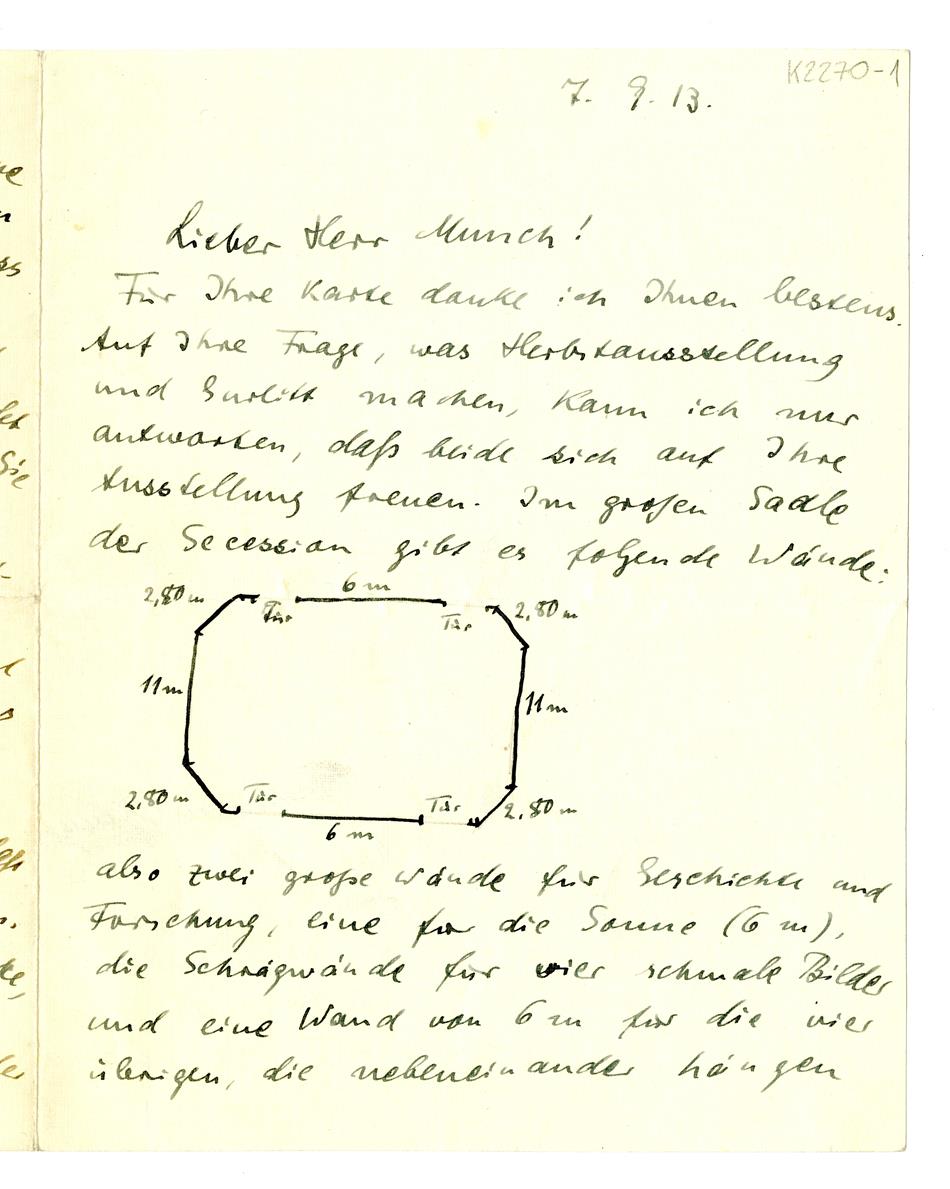 K2270-1
7. 9. 13.
Lieber Herr Munch!
Für Ihre Karte danke ich Ihnen bestens.
Auf Ihre Frage, was Herbstausstellung
und Gurlitt machen, kann ich nur
antworten, daß beide sich auf Ihre
Ausstellung freuen. Im großen Saale
der Secession gibt es folgende Wände:
6 m
2,80 m Tür Tür 2,80 m
11 m 11 m
2,80 m Tür Tür 2,80 m
6 m
also zwei große Wände für Geschichte und
Forschung, eine für die Sonne (6 m),
die Schrägwände für vier schmale Bilder
und eine Wand von 6 m für die vier
übrigen, die nebeneinander hängen